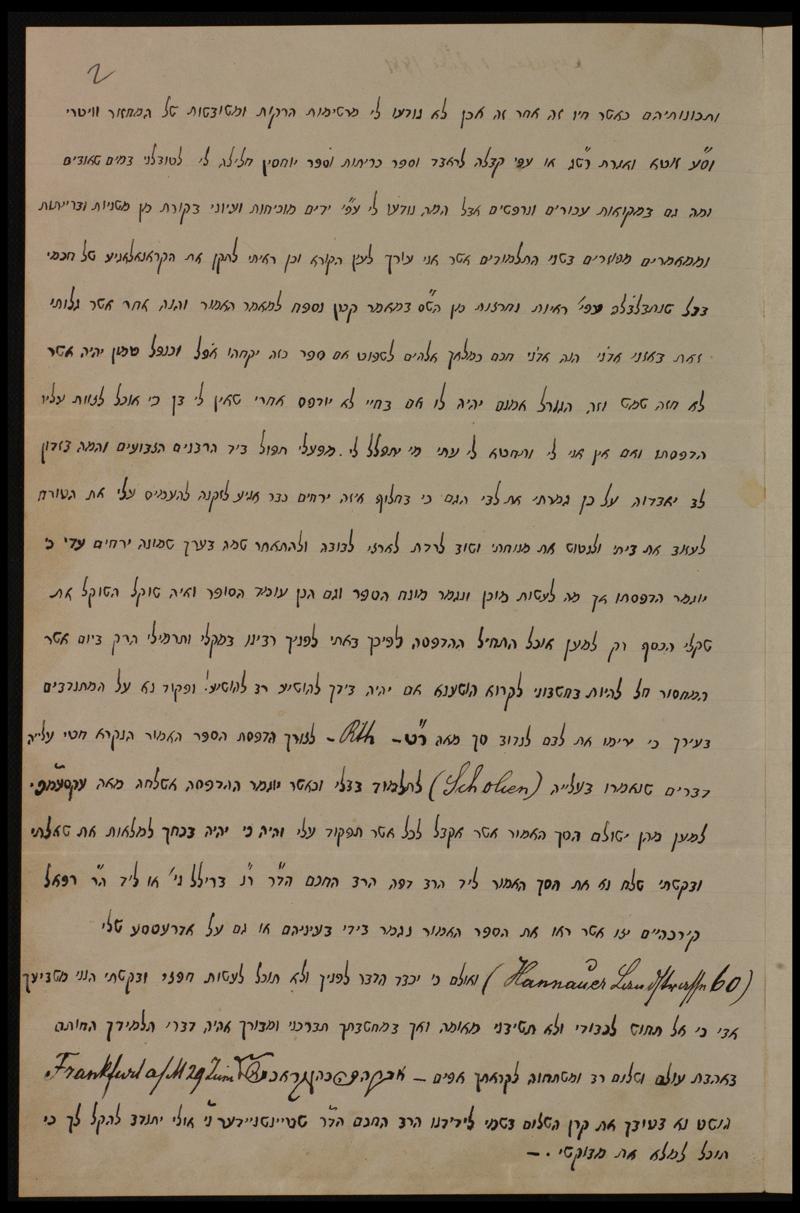 2
ותכונותיהם כאשר חיו זה אחר זה אכן לא נודעו לי מרשימות הרקות ומשובשות של המחזור וויטרי
וס"ע זוטא ואגרת רש"ג או עפ"י קבלה לראבד וספר כריתות וספר יוחסין חלילה לי לטובלני במים שאובים
ומה גם במקואות עכורים ונרפשים אבל המה נודעו לי עפ"י ידים מוכיחות ועיוני בקורת מן משניות וברייתות
וממאמרים מפוזרים בשני התלמודים אשר אני עורך לעין הקורא וכן ראיתי לתקן את הקראנאלאגיע של חכמי
בבל שנתבלבלה עפ"י ראיות נחרצות מן הש"ס במאמר קטן נספח למאמר האמור והנה אחר אשר גלותי
זאת באזני אדני הנה אדני חכם כמלאך אלהים לשפוט אם ספר כזה יקחהו אפל וכנפל טמון יהיה אשר
לא חזה שמש וזה הגורל אמנם יהיה לו אם בחיי לא יודפס אחרי שאין לי בן כי אוכל לצוות עליו
הדפסתו ואם אין אני לי ותחטא לי עתי מי יתפלל לי. מפעלי תפול ביד הרבנים הצבועים והמה בזדון
לב יאבדוה על כן גמרתי את לבי הגם כי בחלוף איזה ירחים כבר אגיע לזקנה להעמיס עלי את הטורח
לעזוב את ביתי ולנטוש את מנוחתי ושוב לרדת לארצי לבובה ולהתאחר שמה בערך שמונה ירחים עדי כי
יוגמר הדפסתו אך מה לעשות מוכן ונגמר מונח הספר וגם הנן עומד הסופר ואיה שוקל השוקל את
שקלי הכסף רק למען אוכל התחיל ההדפסה לפיכך באתי לפניך רבינו במקלי ותרמילי הרק ביום אשר
המחסור חל להיות בחשבוני לקרוא הושענא אם יהיה בידך להושיע רב להושיע! ופקוד נא על המתנדבים
בעירך כי ירימו את לבם לנדוב סך מאה ר"ט - Rth - לצורך הדפסת הספר האמור הנקרא חטי עלייה
דברים שנאמרו בעלייה (Scholien) לתלמוד בבלי וכאשר יוגמר ההדפסה אשלחה מאה
למען מהן ישולם הסך האמור אשר אקבל לכל אשר תפקוד עלי והיה כי יהיה בכחך למלאות את שאלתי
ובקשתי שלח נא את הסך האמור ליד הרב דפה הרב החכם הד"ר ר"נ ברילל ני' או ליד הר' רפאל
קירכהיים יצו אשר ראו את הספר האמור נגמר בידי בעיניהם או גם על אדרעססע שלי
(Hannauer Landstrasse 60) ואולם כי יכבד הדבר לפניך ולא תוכל לעשות חפצי ובקשתי הנני משביעך
אבי כי אל תחוש לכבודי ולא תשיבני מאומה ואך במחשבתך תברכני ומבורך אהיה דברי תלמידך החותם
באהבת עולם ושלום רב ומשתחוה לקראתך אפים — Frankfurt a/M 29 Juni
גושט נא בטובך את קרן השלום בשמי לידידנו הרב החכם הד"ר שטיינשניידער נ"י אולי יתנדב להקל לך כי
תוכל למלא את מבוקשי. —